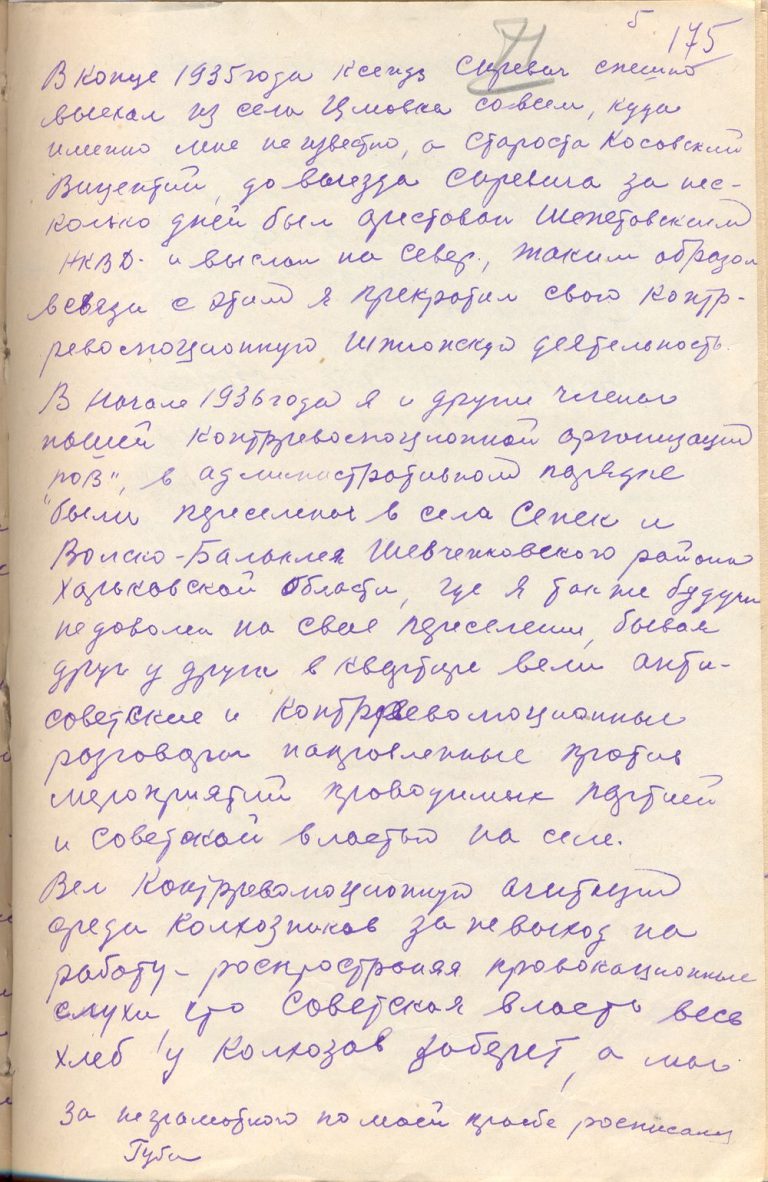 5 175
71
В конце 1935 года ксендз Сиревич спешно
выехал из села Цмовка совсем, куда
именно мне не известно, а староста Косовский
Вицентий, до выезда Сиревича за нес-
колько дней был арестован Шепетовским
НКВД. и выслан на север, таким образом
в связи с этим я прекратил свою контр-
революционную шпионскую деятельность.
В начале 1936 года я и другие члены
нашей контрреволюционной организации
"ПОВ", в административном порядке
были переселены в села Сенек и
Волско-Балаклея Шевченковского района
Харьковской области, где я также будучи
недоволен на свое переселение, бывая
друг у друга в квартире вели анти-
советские и контрреволюционные
разговоры направленные против
мероприятий проводимых партией
и советской властью на селе.
Вел контрреволюционную агитацию
среди колхозников за невыход на
работу - роспространяя провокационные
слухи, что Советская власть весь
хлеб у колхозов заберет, а мы
За неграмотного по моей просьбе росписался
Губа